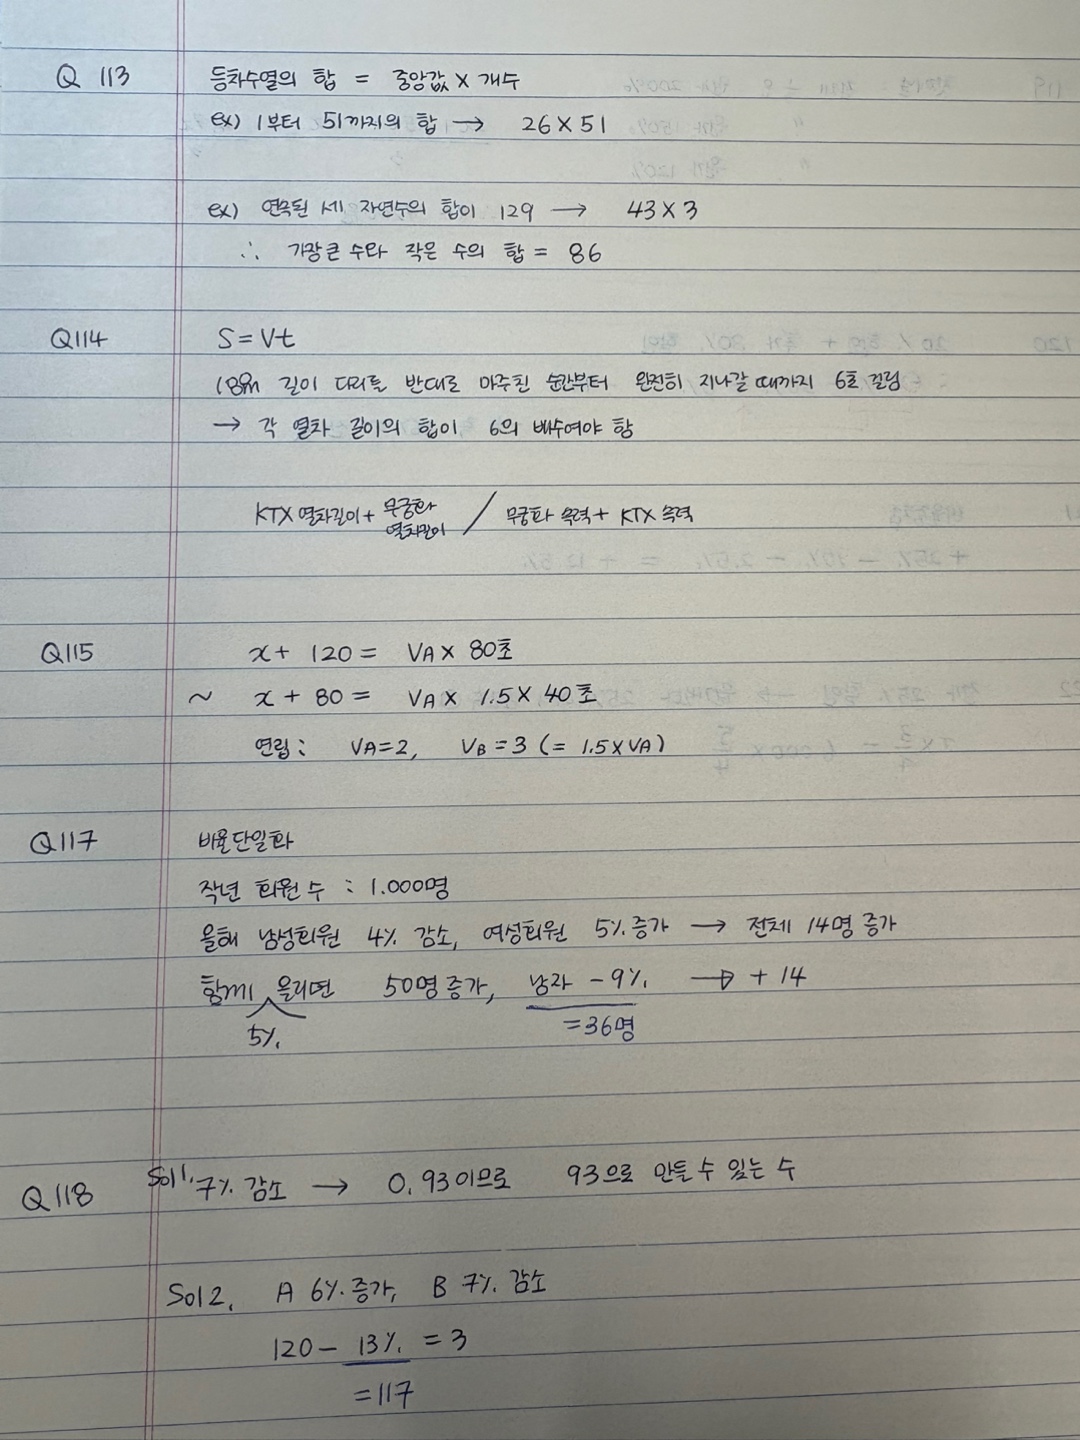 Q 113 등차수열의 합 = 중앙값 × 개수
ex) 1부터 51까지의 합 → 26 × 51
ex) 연속된 세 자연수의 합이 129 → 43 × 3
∴ 가장 큰 수와 작은 수의 합 = 86
Q114 S = Vt
길이 다리를 반대로 마주친 순간부터 완전히 지나갈 때까지 6초 걸림
→ 각 열차 길이의 합이 6의 배수여야 함
KTX 열차길이 + 무궁화 열차길이 / 무궁화 속력 + KTX 속력
Q115 x + 120 = VA × 80초
~ x + 80 = VA × 1.5 × 40초
연립 : VA=2, VB=3 (= 1.5×VA)
Q117 비율단일화
작년 회원 수 : 1.000명
올해 남성회원 4% 감소, 여성회원 5% 증가 → 전체 14명 증가
함께 올리면 50명 증가, 남자 -9% → +14
5% =36명
Q118 Sol1. 7% 감소 → 0.93이므로 93으로 만들 수 있는 수
Sol2. A 6% 증가, B 7% 감소
120 - 13% = 3
=117